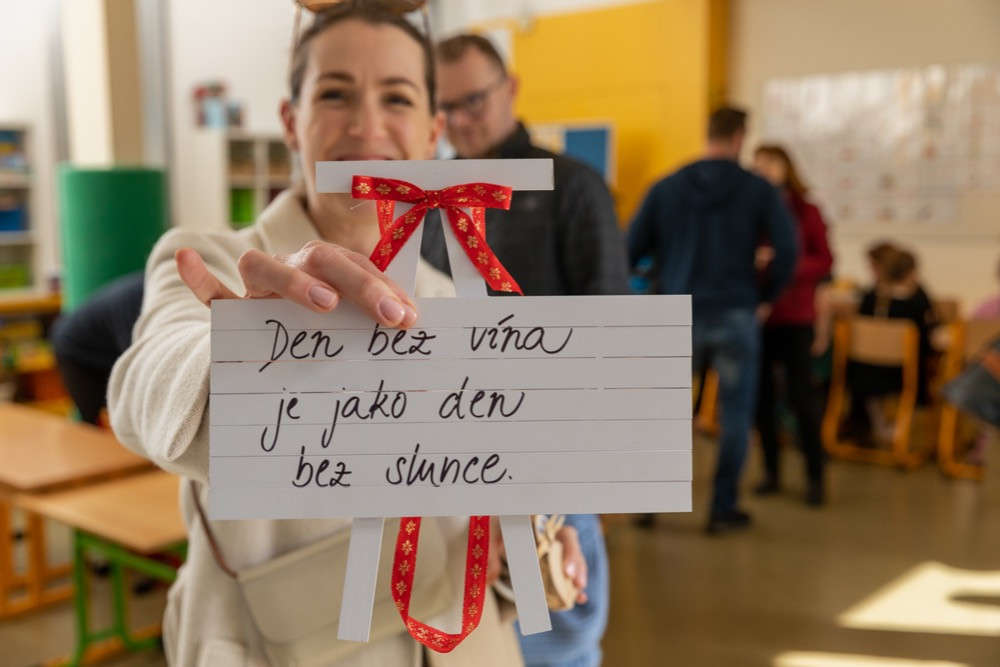 Den bez vína
je jako den
bez slunce.